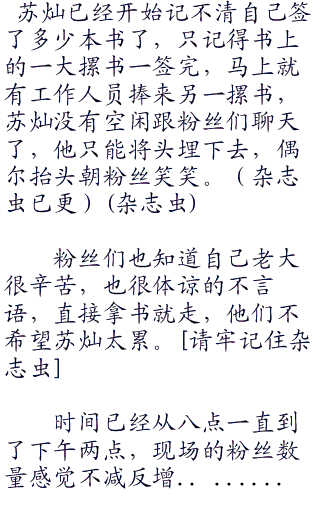 苏灿已经开始记不清自己签
了多少本书了，只记得书上
的一大摞书一签完，马上就
有工作人员捧来另一摞书，
苏灿没有空闲跟粉丝们聊天
了，他只能将头埋下去，偶
尔抬头朝粉丝笑笑。（杂志
虫已更）(杂志虫)
粉丝们也知道自己老大
很辛苦，也很体谅的不言
语，直接拿书就走，他们不
希望苏灿太累。[请牢记住杂
志虫]
时间已经从八点一直到
了下午两点，现场的粉丝数
量感觉不减反增．．……